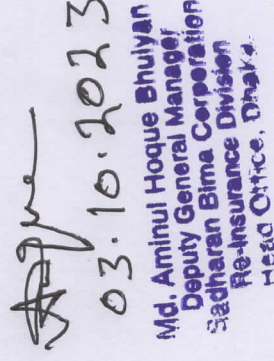 03.10.2023
Md. Aminul Hoque Bhuiyan
Deputy General Manager
Sadharan Bima Corporation
Re-Insurance Division
Head Office, Dhaka.